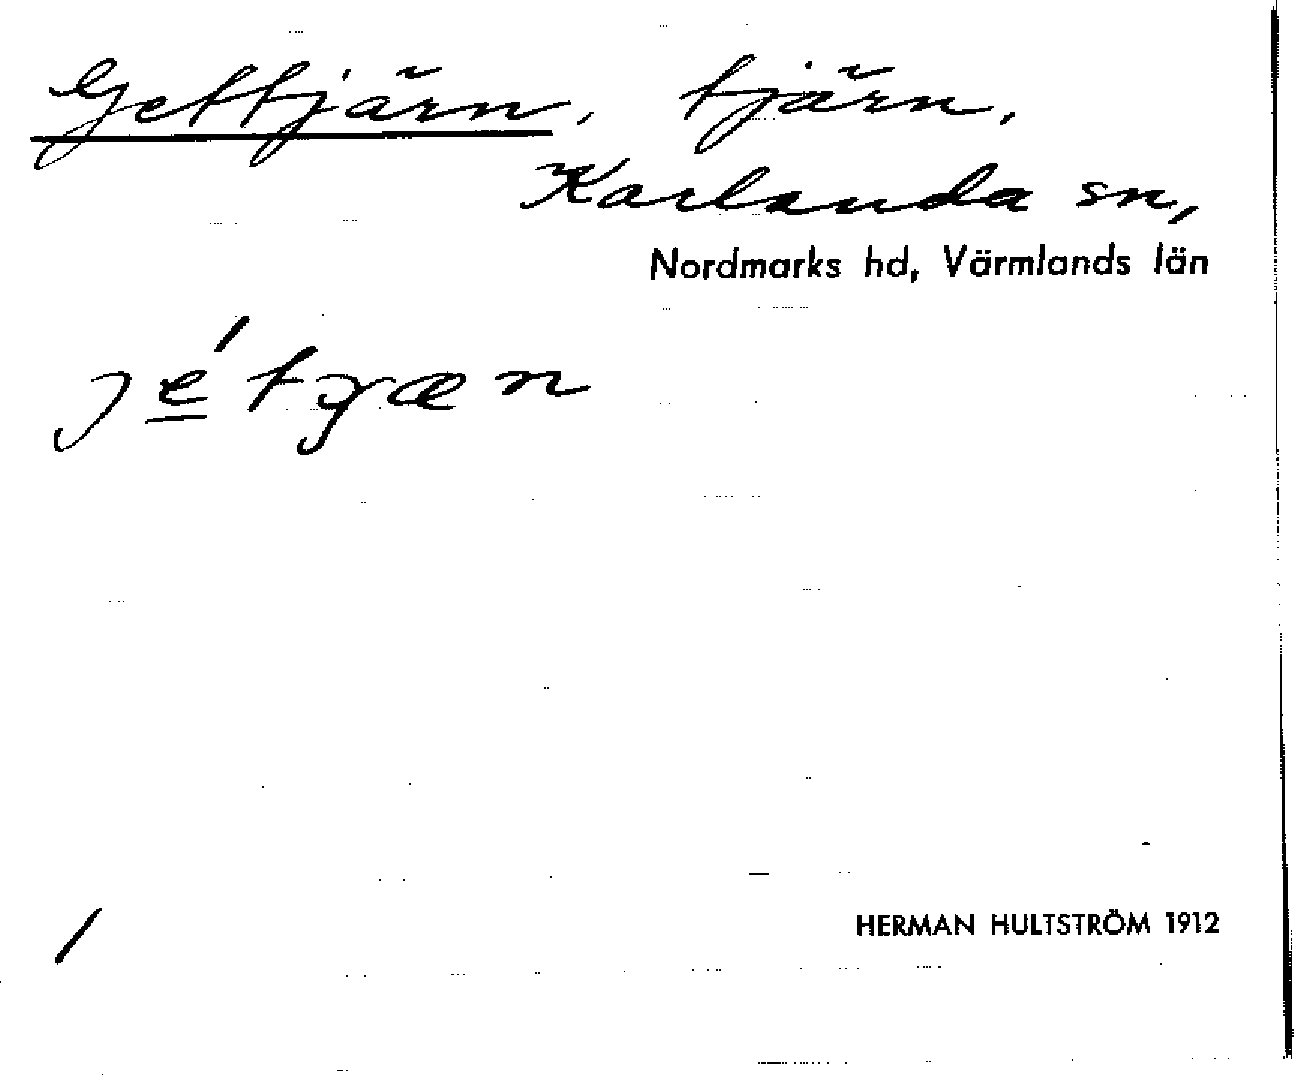 Gettjärn, tjärn,
Karlanda sn,
Nordmarks hd, Värmlands län
jétjæn
/
HERMAN HULTSTRÖM 1912